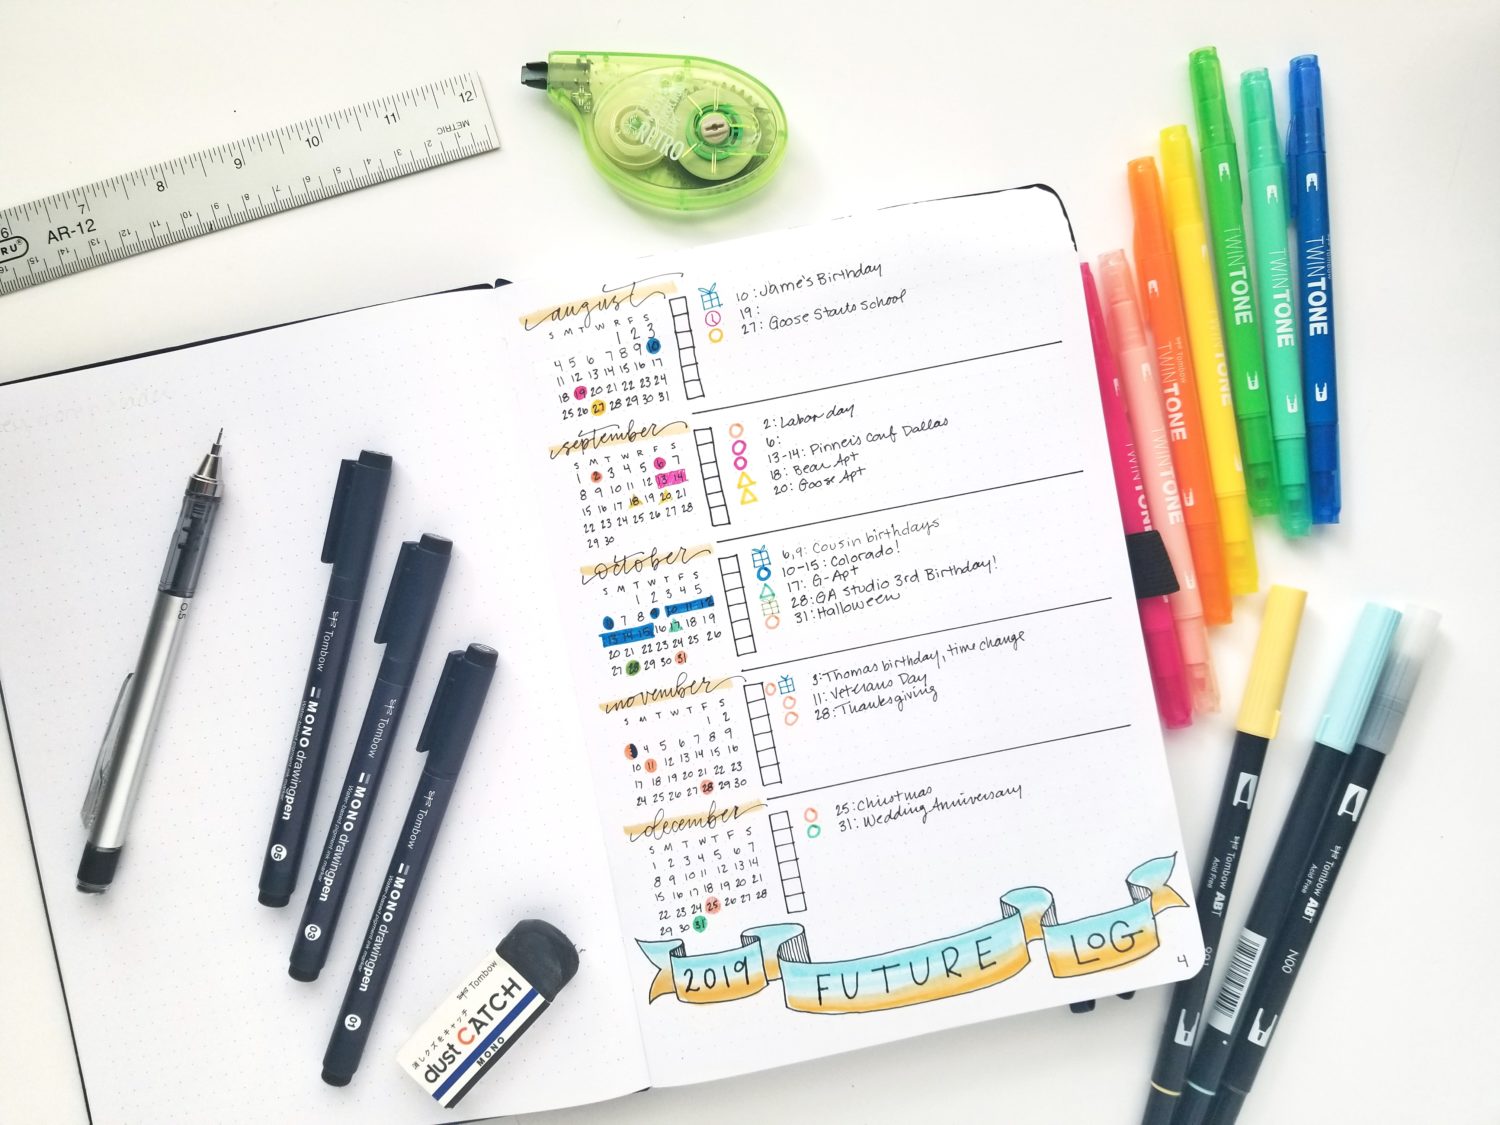 12
11
10
9
8
7
6
METRIC
AR-12
RU®
RETRO
august
S M T W R F S
1 2 3
4 5 6 7 8 9 10
11 12 13 14 15 16 17
18 19 20 21 22 23 24
25 26 27 28 29 30 31
10: Jame's Birthday
19:
27: Goose Starts School
september
S M T W R F S
1 2 3 4 5 6 7
8 9 10 11 12 13 14
15 16 17 18 19 20 21
22 23 24 25 26 27 28
29 30
2: Labor day
6:
13-14: Pinners Conf Dallas
18: Bear Apt
20: Goose Apt
october
S M T W T F S
1 2 3 4 5
6 7 8 9 10 11 12
13 14 15 16 17 18 19
20 21 22 23 24 25 26
27 28 29 30 31
6,9: Cousin birthdays
10-15: Colorado!
17: G-Apt
28: GA Studio 3rd Birthday!
31: Halloween
november
S M T W T F S
1 2
3 4 5 6 7 8 9
10 11 12 13 14 15 16
17 18 19 20 21 22 23
24 25 26 27 28 29 30
3: Thomas birthday, time change
11: Veterans Day
28: Thanksgiving
december
S M T W T F S
1 2 3 4 5 6 7
8 9 10 11 12 13 14
15 16 17 18 19 20 21
22 23 24 25 26 27 28
29 30 31
25: Christmas
31: Wedding Anniversary
2019 FUTURE LOG
4
0.5
Tombow MONO drawing pen
Water-based pigment ink marker
05
Tombow MONO drawing pen
Water-based pigment ink marker
03
Tombow MONO drawing pen
Water-based pigment ink marker
01
Tombow
消しクズをキャッチ
dust CATCH
MONO
TWINTONE
TWINTONE
TWINTONE
TWINTONE
TWINTONE
TWINTONE
Tombow TWINTONE
Tombow ABT
Acid Free
Tombow ABT
Acid Free
N00